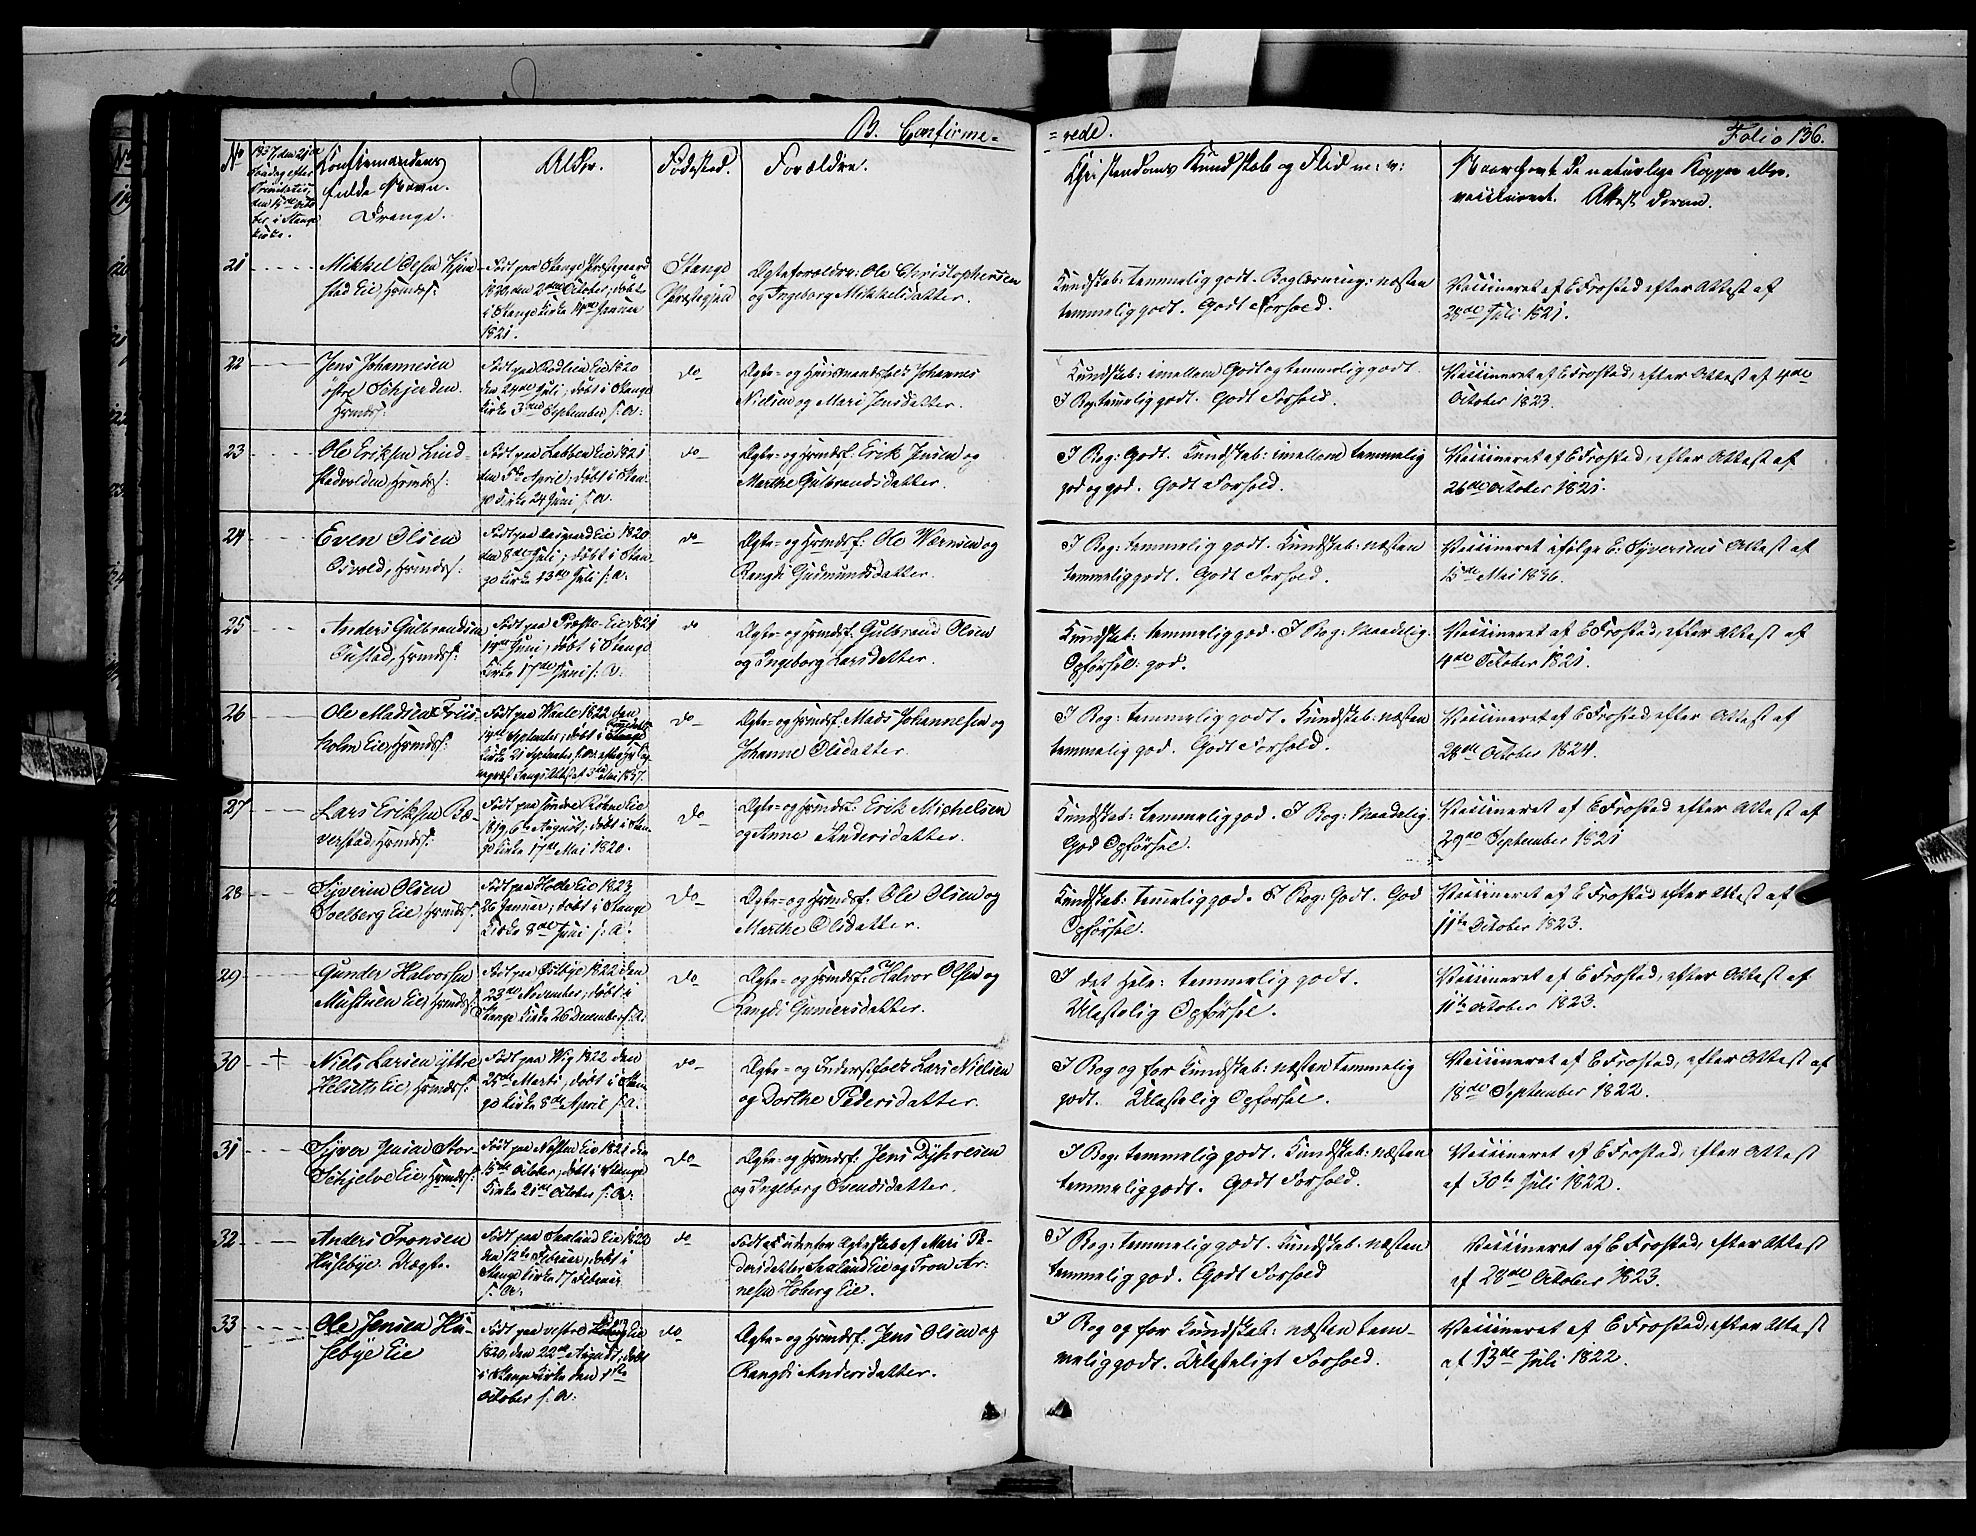 B. Confirme=
=rede.
Folio 136.
No
1837, den 21de
Søndag efter
Trinitatis,
den 15de Octo-
ber i Stange
Kirke.
Confirmandens
fulde Navn.
Drenge.
Alder.
Fødested.
Forældre.
Christendoms Kundskab og Flid m: v:
Naar havt de naturlige Kopper eller
vaccineret. Attest derom.
21
Mikkel Olsen
stad Eie, Hmdss:
Født paa Stange Præstegaard
1820, den 2den October; døbt
i Stange Kirke 14de Januar
1821.
Stange
Præstegjeld
Ægteforældre: Ole Christophersen
og Ingeborg Mikkelsdatter.
Kundskab: temmelig godt. Boglæsning: næsten
temmelig godt. Godt Forhold.
Vaccineret af E Frostad efter Attest af
28de Juli 1821.
22
Jens Johannesen
østre Schjerden.
Hmdss:
Født paa Rødlien Eie 1820
den 24de Juli; døbt i Stange
Kirke 3die September s: A:
do
Ægte- og Huusmandsfolk Johannes
Nielsen og Mari Jensdatter.
Kundskab: imellem Godt og temmelig godt.
I Bog: temmelig godt. Godt Forhold.
Vaccineret af E Frostad, efter Attest af 4de
October 1823.
23
Ole Eriksen Lind-
stadvolden, Hmdss:
Født paa Labben Eie 1821
den 5te April; døbt i Stan-
ge Kirke 24 Juni s: A.
do
Ægte- og Hmdsf: Erik Jensen og
Marthe Gulbrandsdatter.
I Bog: Godt. Kundskab: imellem temmelig
god og god. Godt Forhold.
Vaccineret af E Frostad, efter Attest af
26de October 1821.
24
Even Olsen
Osvold, Hmdss:
Født paa Aasgaard Eie 1820
den 8de Juli; døbt i Stan-
ge Kirke 13de Juli s: A.
do
Ægte- og Hmdsf: Ole Wærnsen og
Rangdi Gudmundsdatter.
I Bog: temmelig godt. Kundskab: næsten
temmelig godt. Godt Forhold.
Vaccineret ifølge E: Syversens Attest af
15de Mai 1836.
25
Anders Gulbrandsen
Oustad, Hmdss:
Født paa Præste-Eie 1821
14de Juni, døbt i Stange
Kirke 17de Juni s: A:
do
Ægte- og Hmdsf: Gulbrand Olsen
og Ingeborg Larsdatter.
Kundskab: temmelig god. I Bog: Maadelig.
Opførsel: god.
Vaccineret af E Frostad, efter Attest af
4de October 1821.
26
Ole Madsen Friis
holm Eie, Hmdss:
Født paa Waale 1822 den
14de September, døbt i
Kirke 21 September s: A:
Attest 3die Mai 1837.
do
Ægte- og Hmdsf: Mads Johannesen og
Johanne Olsdatter.
I Bog: temmelig godt. Kundskab: næsten
temmelig god. Godt Forhold.
Vaccineret af E Frostad efter Attest af
28de October 1824.
27
Lars Eriksen Bæ-
verstad, Hmdss:
Født paa søndre Røhne Eie
1819, 6te August; døbt i Stan-
ge Kirke 17de Mai 1820.
do
Ægte- og Hmdsf: Erik Michelsen
og Anne Andersdatter.
Kundskab: temmelig god. I Bog: Maadelig.
God Opførsel.
Vaccineret af E Frostad efter Attest af
29de September 1821
28
Syverin Olsen
Soelberg Eie, Hmdss:
Født paa Holle Eie 1823
26 Januar; døbt i Stange
Kirke 8de Juni s: A:
do
Ægte- og Hmdsf: Ole Olsen og
Marthe Olsdatter.
Kundskab: temmelig god. I Bog: Godt. God
Opførsel.
Vaccineret af E Frostad efter Attest af
11te October 1823.
29
Gunder Halvorsen
Eie, Hmdss:
Født paa Østbye 1822 den
23de November; døbt i
Stange Kirke 26 December s: A:
do
Ægte- og Hmdsf: Halvor Olsen og
Rangdi Gundersdatter.
I det Hele: temmelig godt.
Ulastelig Opførsel.
Vaccineret af E Frostad, efter Attest af
11te October 1823.
30
+
Niels Larsen Yttre
Holseth Eie, Hmdss:
Født paa Wig 1822 den
25de Marts, døbt i Stan-
ge Kirke 8de April s: A:
do
Ægte- og Indersf:folk Lars Nielsen
og Dorthe Pedersdatter.
I Bog og for Kundskab: næsten temmelig
godt. Ulastelig Opførsel.
Vaccineret af E Frostad, efter Attest af
18de September 1822.
31
Syver Jensen Stor-
Schjelve Eie, Hmdss:
Født paa Nøsten Eie 1821 den
15de October, døbt i Stange
Kirke 21de October s: A:
do
Ægte- og Hmdsf: Jens Dyhresen
og Ingeborg Svendsdatter.
I Bog: temmelig godt. Kundskab: næsten
temmelig godt. Godt Forhold.
Vaccineret af E Frostad, efter Attest
af 30te Juli 1822.
32
Anders Tronsen
Husebye. Uægte.
Født paa Sælid Eie 1820
den 12te Februar, døbt i
Stange Kirke 17 Februar
s: A:
do
Født udenfor Ægteskab af Mari Pe-
dersdatter Sælid Eie og Tron Ar-
nesen Hoberg Eie.
I Bog: temmelig godt. Kundskab: næsten
temmelig god. Godt Forhold
Vaccineret af E Frostad, efter Attest
af 28de October 1823.
33
Ole Jensen Hu-
sebye Eie
Født paa vestre Eie
1820, den 22de August; døbt
i Stange Kirke den 1ste
October s: A:
do
Ægte- og Hmdsf: Jens Olsen og
Rangdi Andersdatter.
I Bog og for Kundskab: næsten tem-
melig godt. Ulasteligt Forhold.
Vaccineret af E Frostad, efter Attest
af 13de Juli 1822.